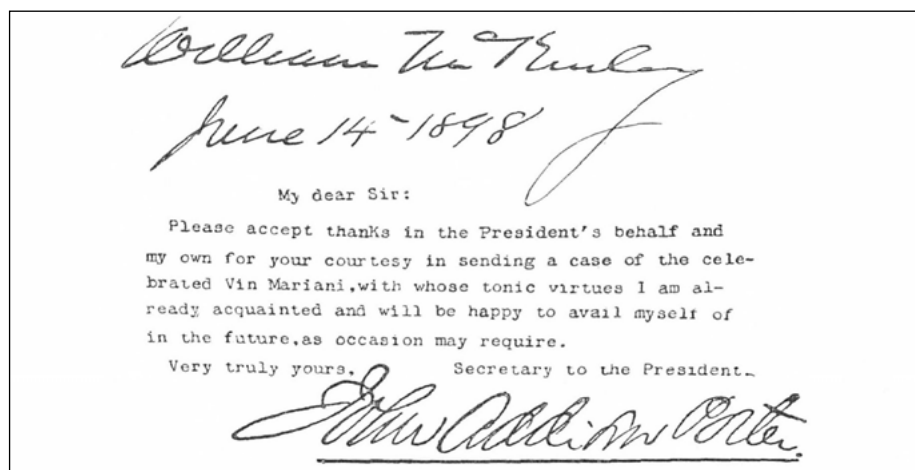 William McKinley
June 14-1898
My dear Sir:
Please accept thanks in the President's behalf and
my own for your courtesy in sending a case of the cele-
brated Vin Mariani,with whose tonic virtues I am al-
ready acquainted and will be happy to avail myself of
in the future,as occasion may require.
Very truly yours, Secretary to the President.
John Addison Porter.